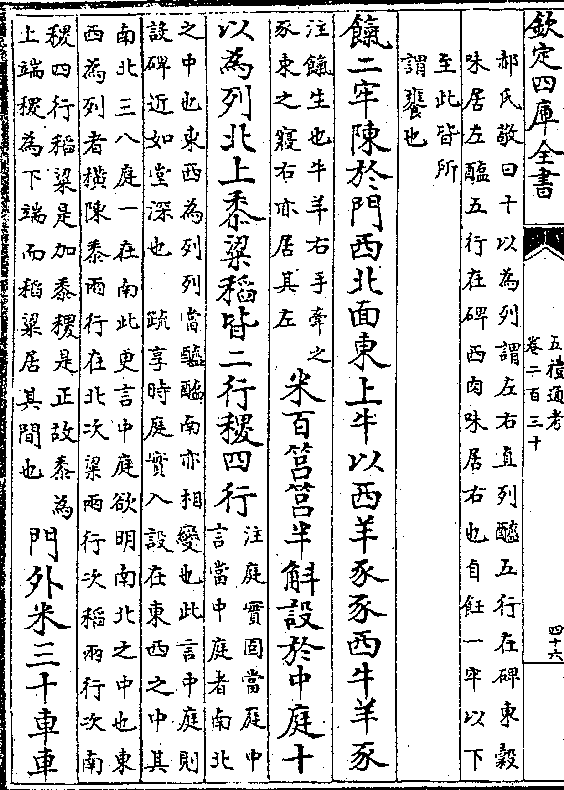 欽定四庫全書
五禮通考
卷二百三十
四十六
郝氏敬曰十以為列謂左右直列醯五行在碑東穀
味居左醢五行在碑西肉味居右也自飪一牢以下
至此皆所
謂饔也
餼二牢陳於門西北面東上牛以西羊豕豕西牛羊豕
注餼生也牛羊右手牽之
豕束之寢右亦居其左
米百筥筥半斛設於中庭十
以為列北上黍粱稻皆二行稷四行
注庭實固當庭中
言當中庭者南北
之中也東西為列列當醯醢南亦相變也此言中庭則
設碑近如堂深也 疏享時庭實入設在東西之中其
南北三八庭一在南此更言中庭欲明南北之中也東
西為列者橫陳黍兩行在北次粱兩行次稻兩行次南
稷四行稻粱是加黍稷是正故黍為
上端稷為下端而稻粱居其間也
門外米三十車車